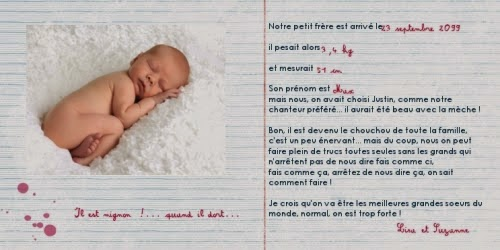 Notre petit frère est arrivé le 23 septembre 2099
il pesait alors 3,4 kg
et mesurait 51 cm
Son prénom est Max
mais nous, on avait choisi Justin, comme notre
chanteur préféré... il aurait été beau avec la mèche !
Bon, il est devenu le chouchou de toute la famille,
c'est un peu énervant... mais du coup, nous on peut
faire plein de trucs toutes seules sans les grands qui
n'arrêtent pas de nous dire fais comme ci,
fais comme ça, arrêtez de nous dire ça, on sait
comment faire !
Je crois qu'on va être les meilleures grandes soeurs du
monde, normal, on est trop forte !
Lise et Suzanne
Il est mignon !... quand il dort...